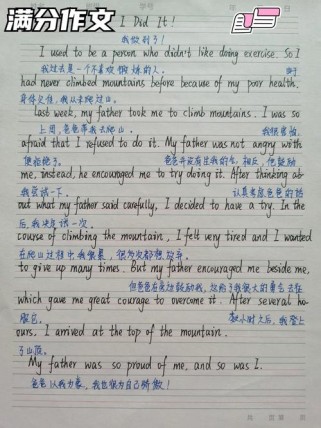 满分作文
I Did It!
我做到了!
I used to be a person who didn't like doing exercise. So I
我过去是一个不喜欢锻炼的人。
had never climbed mountains before because of my poor health.
身体欠佳,我从未爬过山。
Last week, my father took me to climb mountains. I was so
上周,爸爸带我去爬山。 我很害怕,
afraid that I refused to do it. My father was not angry with
便拒绝了。 爸爸并没有生我的气,相反,他鼓励
me, instead, he encouraged me to try doing it. After thinking ab
我尝试一下。 认真考虑爸爸的话
out what my father said carefully, I decided to have a try. In the
后,我决定试一次。
course of climbing the mountain, I felt very tired and I wanted
在爬山过程中我很累,很多次都想放弃。
to give up many times. But my father encouraged me beside me,
但爸爸在旁边鼓励我,
which gave me great courage to overcome it. After several ho
数小时之后,我登上
ours. I arrived at the top of the mountain.
了山顶。
My father was so proud of me, and so was I.
爸爸以我为豪,我也很为自己骄傲!